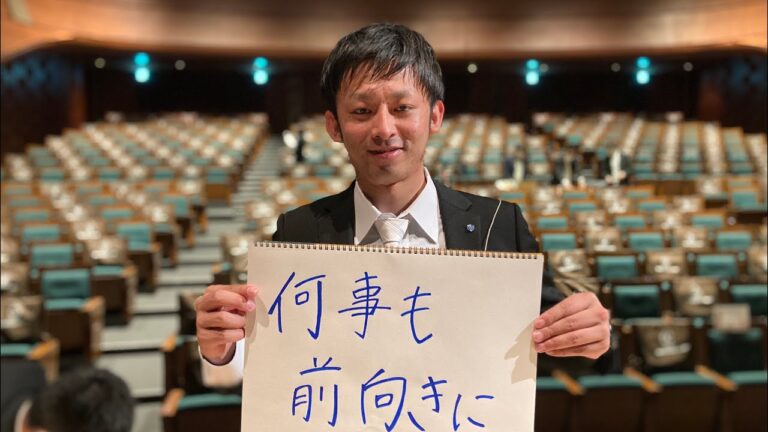 何事も
前向きに